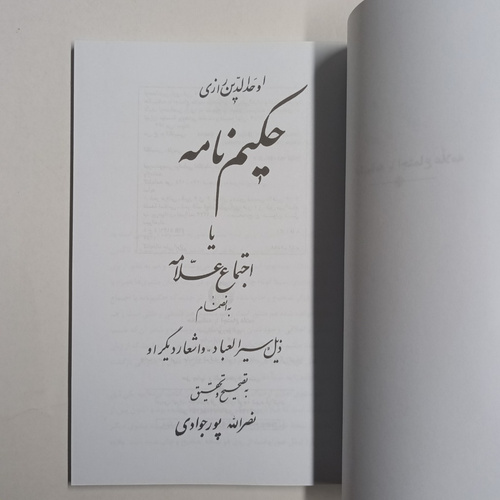 اوحدالدین رازی
حکیم نامه
یا
اجتماع علّامه
به انضمام
ذیل سیرالعباد و اشعار دیگر او
به تصحیح و تحقیق
نصرالله پورجوادی